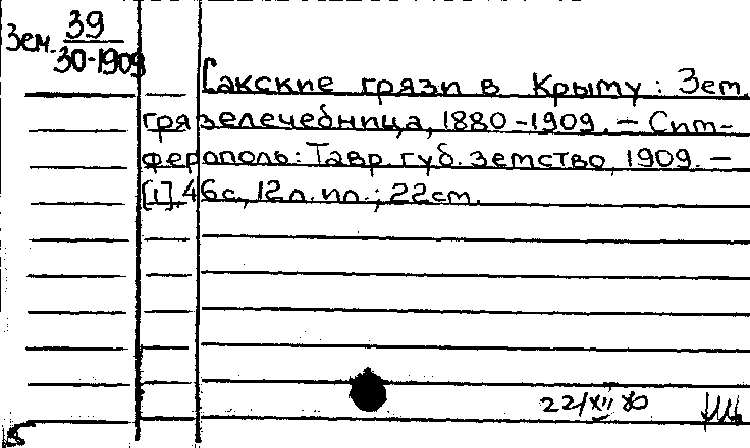 Зем. 39
30-1909
Сакские грязи в Крыму: Зем.
грязелечебница, 1880-1909. — Сим-
ферополь: Тавр. губ. земство, 1909. —
[1], 46с., 12л. ил.; 22см.
22/XII 80